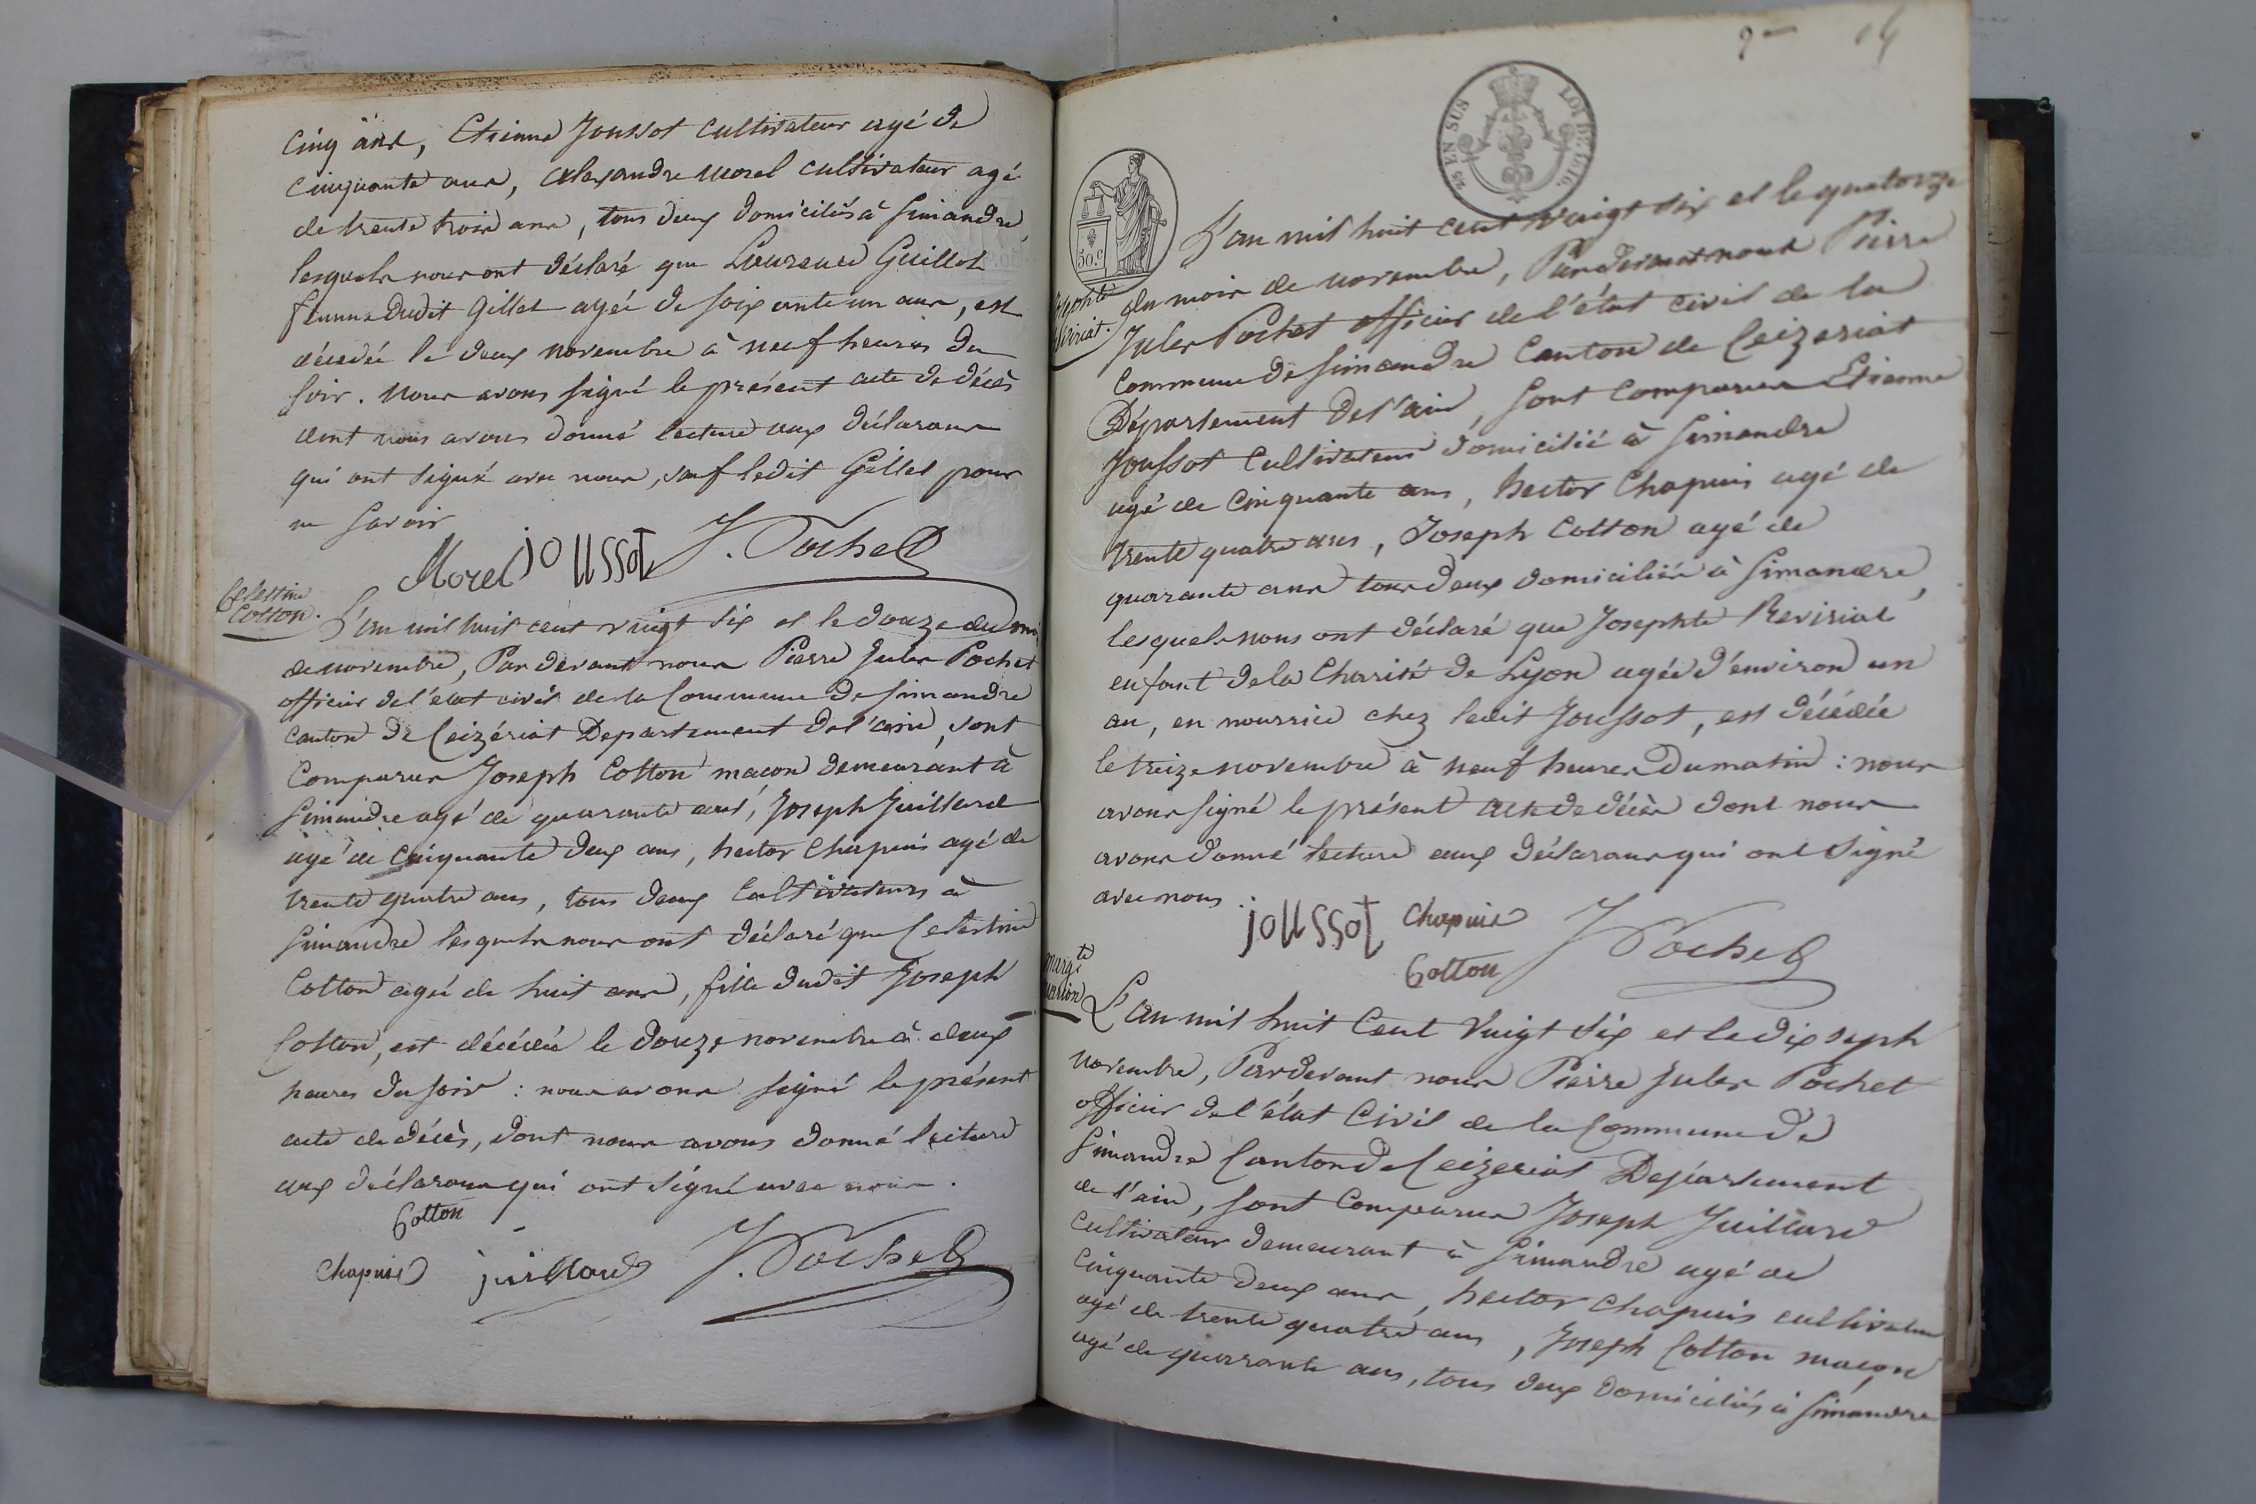 cinq ans, Etienne Joussot cultivateur agé de
cinquante ans, alexandre morel cultivateur agé
de trente trois ans, tous deux domiciliés à Simandre,
lesquels nous ont déclaré que Laurence Guillot
femme dudit Gillet agée de soixante un ans, est
décédée le deux novembre à neuf heures du
soir. nous avons signé le présent acte de décès
dont nous avons donné lecture aux déclarans
qui ont signé avec nous, sauf ledit Gillet pour
ne savoir
Morel joussot J. Pochet
Celestine
Cotton.
L'an mil huit cent vingt six et le douze du mois
de novembre, Par devant nous Pierre Jules Pochet
officier de l'état civil de la Commune de Simandre
canton de Ceizériat Departement de l'ain, sont
comparus Joseph Cotton macon demeurant à
Simandre agé de quarante ans, Joseph Juillard
agé de cinquante deux ans, hector Chapuis agé de
trente quatre ans, tous deux Cultivateurs à
Simandre lesquels nous ont déclaré que Celestine
Cotton agée de huit ans, fille dudit Joseph
Cotton, est décédée le douze novembre à deux
heures du soir : nous avons signé le présent
acte de décès, dont nous avons donné lecture
aux déclarans qui ont signé avec nous.
Cotton
Chapuis juillard J. Pochet
14
25 EN SUS LOI DE 1816.
50 c
Josephte
L'an mil huit cent vingt six et le quatorze
du mois de novembre, Pardevant nous Pierre
Jules Pochet officier de l'état civil de la
Commune de Simandre Canton de Ceizeriat
Département de l'ain, sont comparus Etienne
Joussot Cultivateur domicilié à Simandre
agé de cinquante ans, hector Chapuis agé de
trente quatre ans, Joseph Cotton agé de
quarante ans tous deux domiciliés à Simandre,
lesquels nous ont déclaré que Josephte Revirial
enfant de la Charité de Lyon agée d'environ un
an, en nourrice chez ledit Joussot, est décédée
le treize novembre à neuf heures du matin : nous
avons signé le présent acte de décès dont nous
avons donné lecture aux déclarans qui ont signé
avec nous.
joussot Chapuis J Pochet
Cotton
marg te
L'an mil huit Cent Vingt six et le dix sept
novembre, Pardevant nous Pierre Jules Pochet
officier de l'état Civil de la Commune de
Simandre Canton de Ceizeriat Département
de l'ain, sont Comparus Joseph Juillard
cultivateur demeurant à Simandre agé de
cinquante deux ans, hector chapuis cultivateur
agé de trente quatre ans, Joseph Cotton macon
agé de quarante ans, tous deux domiciliés à Simandre